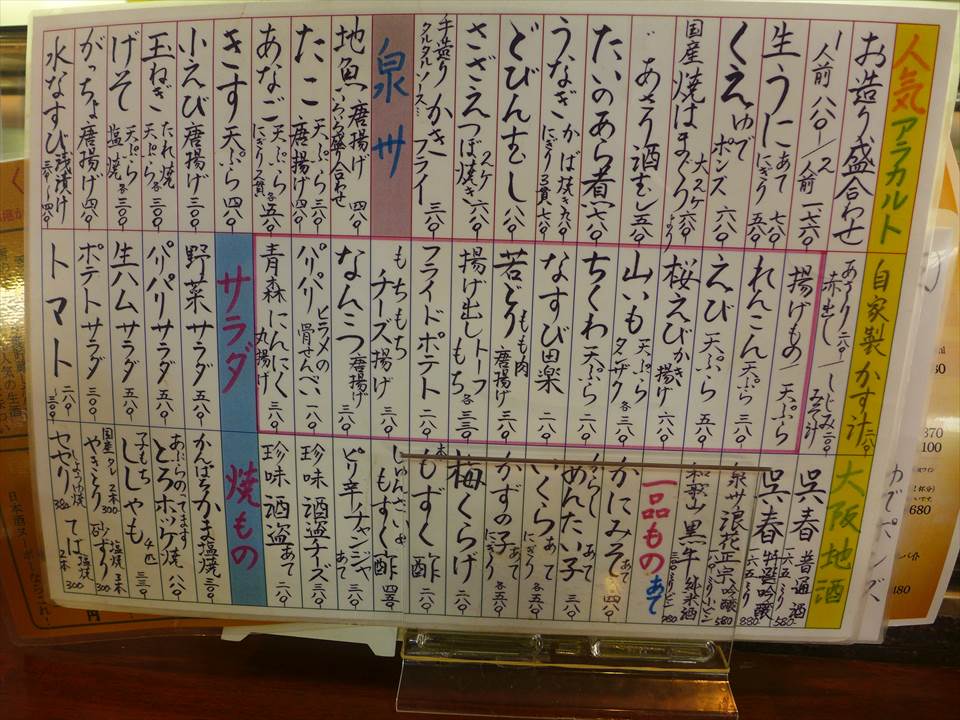 人気アラカルト
お造り盛合わせ
一人前 八八〇 / 二人前 一六六〇
生うに あて 七八〇 にぎり 五八〇
くえ ゆでポンズ 六八〇
国産 焼はまぐり 大二ヶ 六八〇より
あさり酒むし 五八〇
たいのあら煮 六八〇
うなぎ かば焼き 九八〇 にぎり2貫 七八〇
どびんむし 八八〇
さざえ つぼ焼き 二ヶ 六八〇
手造り タルタルソース かきフライ 三八〇
泉州
地魚 唐揚げ いろいろ盛り合わせ
たこ 天ぷら 三八〇 唐揚げ 四八〇
あなご 天ぷら にぎり2貫 各五八〇
きす 天ぷら 四八〇
小えび 唐揚げ 三八〇
玉ねぎ たれ焼 天ぷら 各三〇〇
げそ 天ぷら 塩焼 各三〇〇
がっちょ 唐揚げ 四八〇
水なすび 浅漬け 四八〇
自家製かす汁 二八〇
あさり 二八〇 / しじみ 二〇〇
赤出し / みそ汁
揚げもの / 天ぷら
れんこん 天ぷら 三八〇
えび 天ぷら 五八〇
桜えび かき揚げ 六八〇
山いも 天ぷら タンザク 各三八〇
ちくわ 天ぷら 二八〇
なすび田楽 二八〇
若どり もも肉 唐揚げ 三八〇
揚げ出し トーフ もち 各三三〇
フライドポテト 二八〇
もちもち チーズ揚げ 三八〇
なんこつ 唐揚げ 三八〇
パリパリ ヒラメの骨せんべい 一八〇
青森 にんにく 丸揚げ 三八〇
サラダ
野菜サラダ 五八〇
パリパリサラダ 五八〇
生ハムサラダ 五八〇
ポテトサラダ 三八〇
トマト 二八〇
大阪地酒
呉春 普通酒 580
呉春 特吟 吟醸 880
泉州 浪花正宗 吟醸 580
和歌山 黒牛 純米酒 780
一品もの あて
かにみそ あて 四八〇
めんたい子 あて 三八〇
いくら あて にぎり 各五八〇
かずの子 あて にぎり 各五八〇
梅くらげ 二八〇
もずく酢 二八〇
じゅんさい もずく酢 四五〇
ピリ辛 チャンジャ あて 二八〇
珍味 酒盗チーズ 三八〇
珍味 酒盗 あて 二八〇
焼もの
かんぱちかま 塩焼 三八〇
あぶらのってます とろホッケ焼 八八〇
子もち ししゃも 4匹 三三〇
国産 やきとり タレ 2本 300 砂ずり 塩焼 2本 300
セセリ しょうゆ焼 380 てば 塩焼 2本 300
ゆでポンズ
370
100
680
480